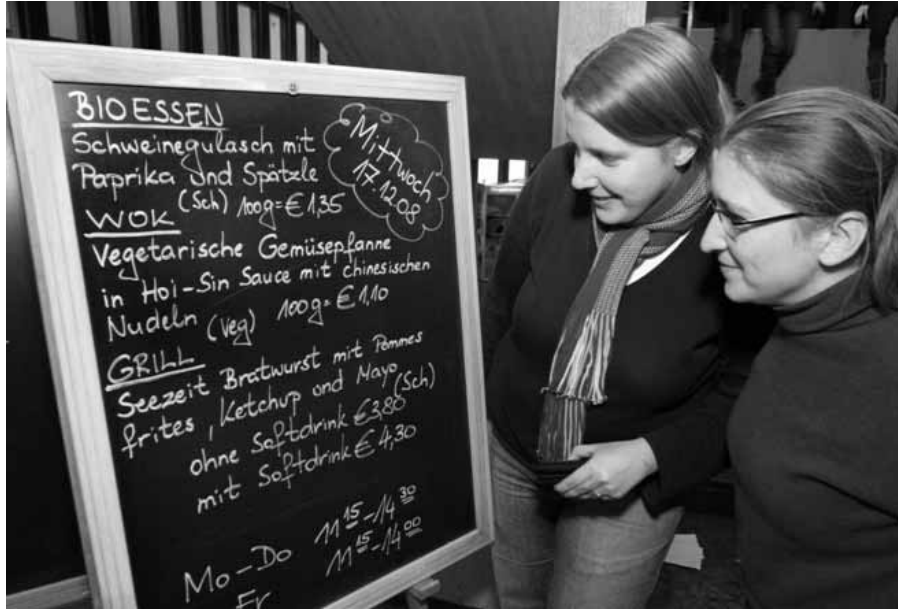 BIO ESSEN
Schweinegulasch mit
Paprika und Spätzle
(Sch) 100g=€ 1,35
Mittwoch
17.12.08
WOK
Vegetarische Gemüsepfanne
in Hoi-Sin Sauce mit chinesischen
Nudeln (Veg) 100g=€ 1,10
GRILL
Seezeit Bratwurst mit Pommes
frites, Ketchup und Mayo (Sch)
ohne Softdrink €3,80
mit Softdrink € 4,30
Mo-Do 11 15-14 30
Fr 11 15-14 00